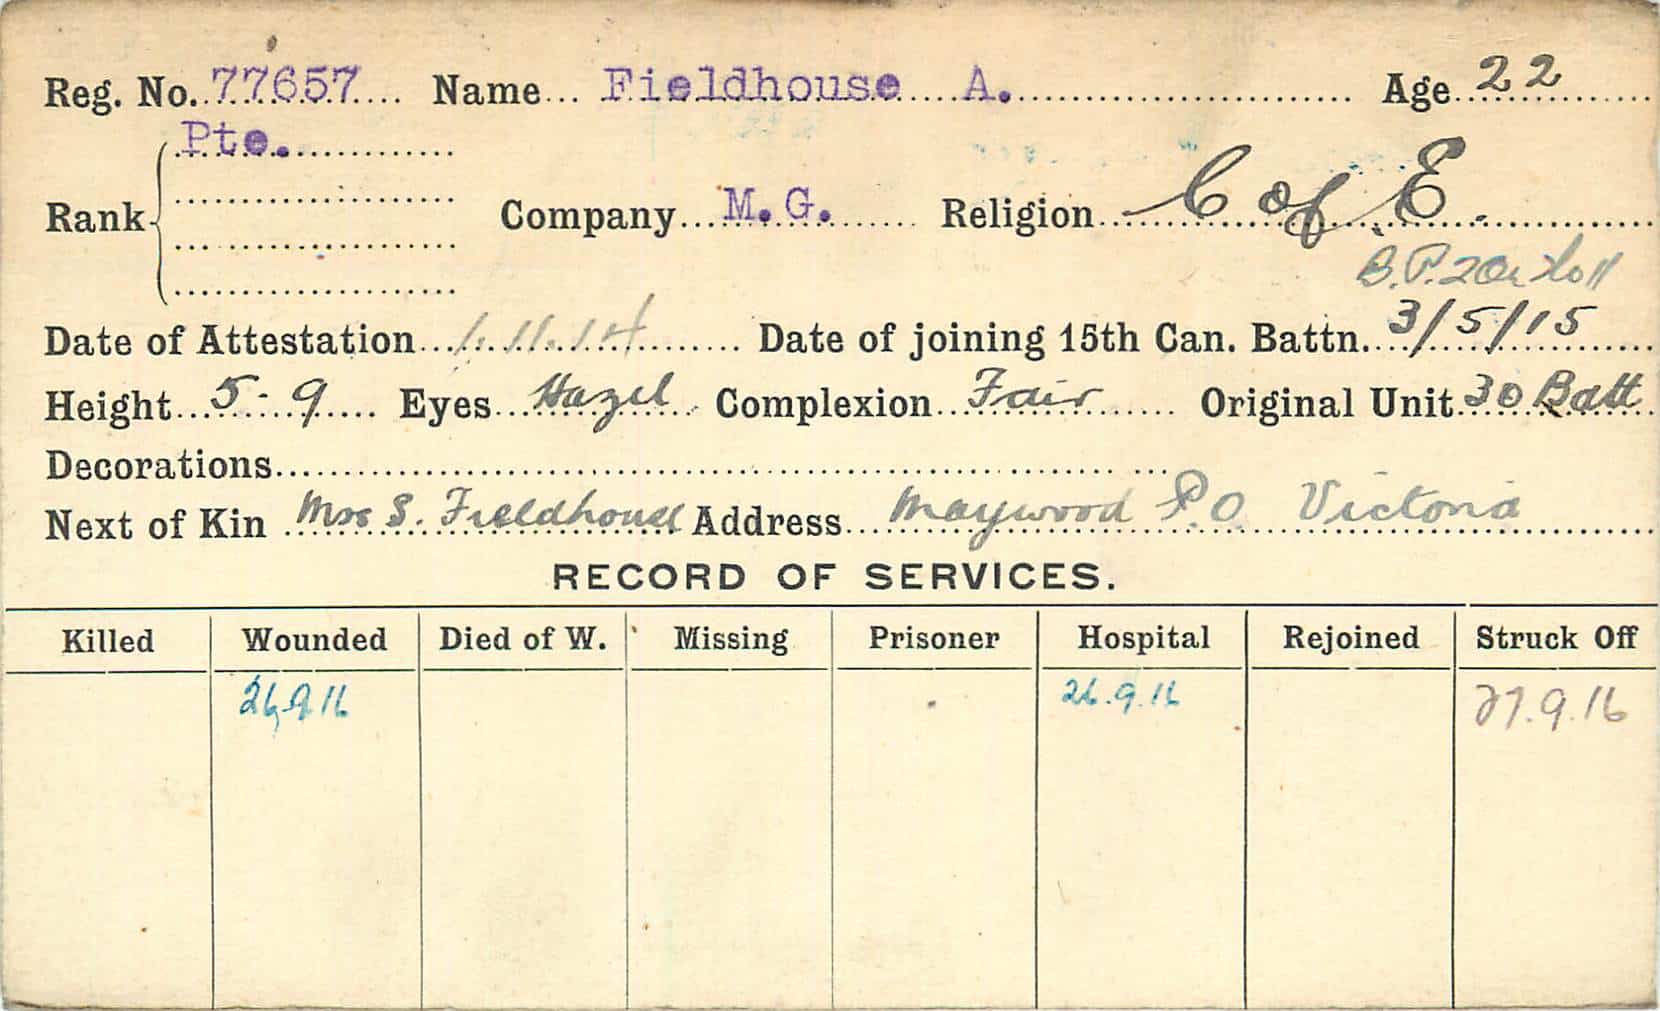 Reg. No. 77657 Name Fieldhouse A. Age 22
Rank Pte. Company M.G. Religion C of E.
B.P.
Date of Attestation 1.11.14 Date of joining 15th Can. Battn. 3/5/15
Height 5-9 Eyes Hazel Complexion Fair Original Unit 30 Batt
Decorations
Next of Kin Mrs S. Fieldhouse Address Maywood P.O. Victoria
RECORD OF SERVICES.
Killed Wounded Died of W. Missing Prisoner Hospital Rejoined Struck Off
26.9.16 26.9.16 27.9.16